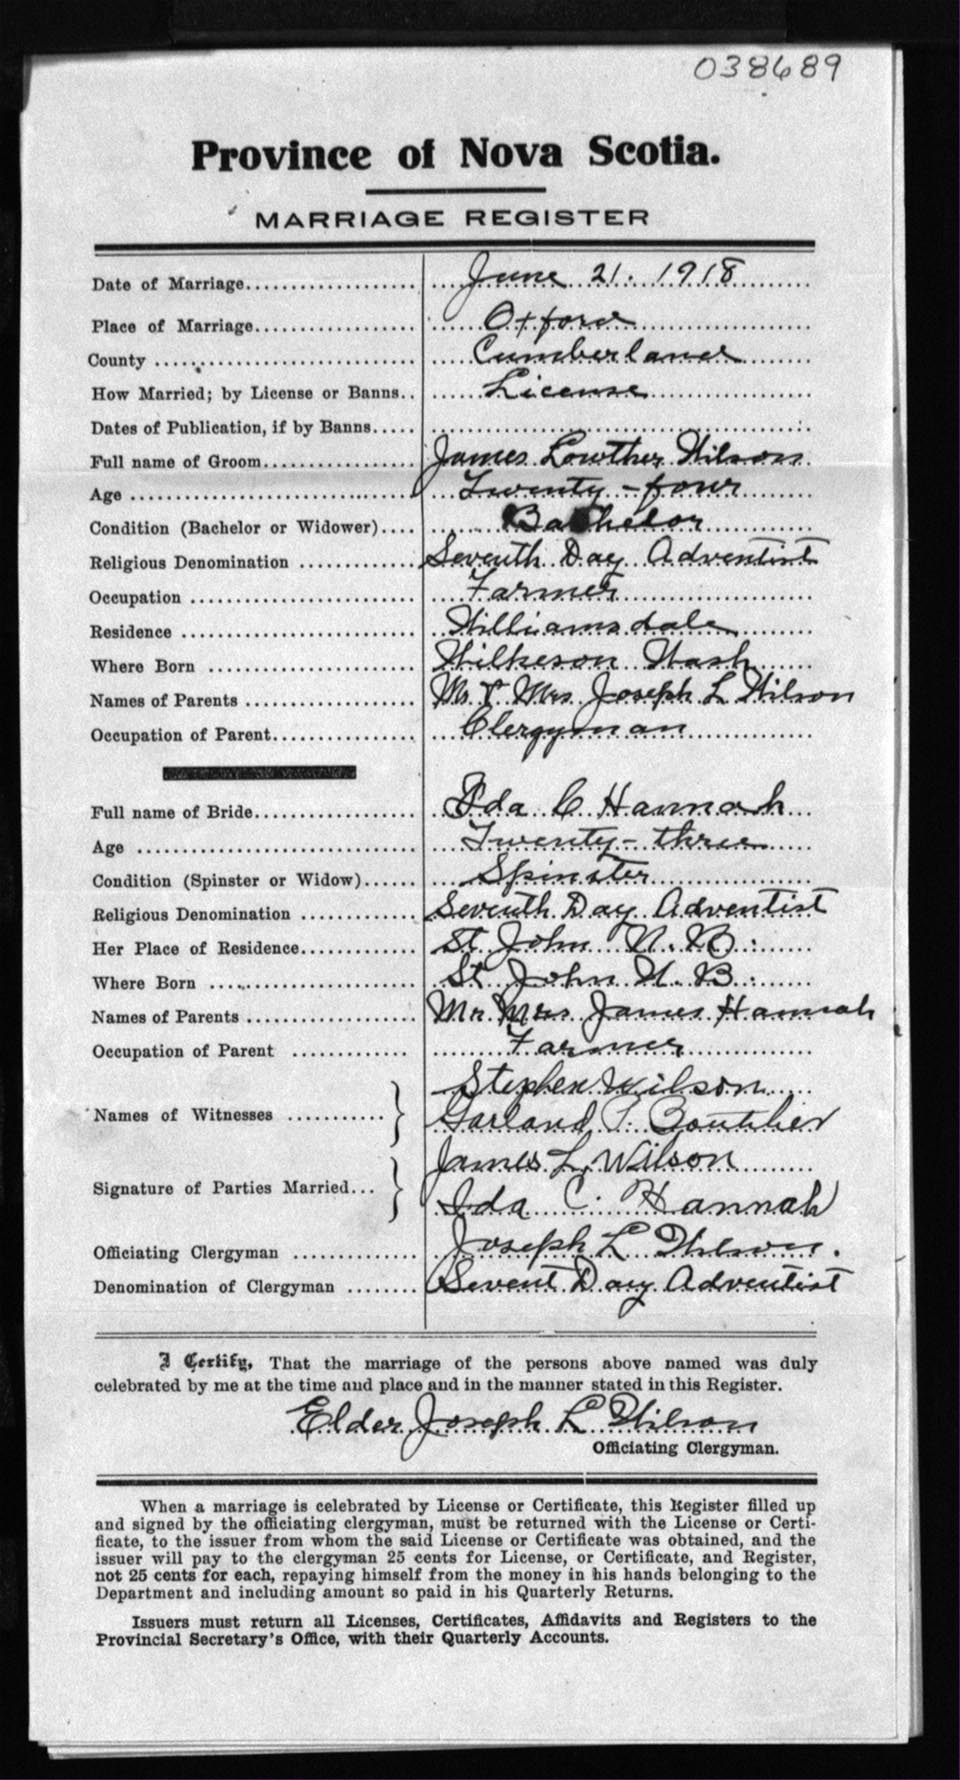 038689
Province of Nova Scotia.
MARRIAGE REGISTER
Date of Marriage.................. June 21. 1918
Place of Marriage.................. Oxford
County .................. Cumberland
How Married; by License or Banns.. License
Dates of Publication, if by Banns.....
Full name of Groom.................. James Lowther Wilson
Age .................. Twenty-four
Condition (Bachelor or Widower).... Bachelor
Religious Denomination ............ Seventh Day Adventist
Occupation .................. Farmer
Residence .................. Williamsdale
Where Born .................. Wilkeson Wash
Names of Parents .................. Mr & Mrs Joseph L Wilson
Occupation of Parent.................. Clergyman
Full name of Bride.................. Ida C Hannah
Age .................. Twenty-three
Condition (Spinster or Widow)...... Spinster
Religious Denomination ............ Seventh Day Adventist
Her Place of Residence............ St John N.B.
Where Born .................. St John N.B.
Names of Parents .................. Mr Mrs James Hannah
Occupation of Parent ............ Farmer
Stephen Wilson
Names of Witnesses ........... } Garland P. Boutilier
James L. Wilson
Signature of Parties Married... } Ida C. Hannah
Officiating Clergyman ............ Joseph L Wilson.
Denomination of Clergyman ........ Sevent Day Adventist
I Certify, That the marriage of the persons above named was duly
celebrated by me at the time and place and in the manner stated in this Register.
Elder Joseph L Wilson
Officiating Clergyman.
When a marriage is celebrated by License or Certificate, this Register filled up
and signed by the officiating clergyman, must be returned with the License or Certi-
ficate, to the issuer from whom the said License or Certificate was obtained, and the
issuer will pay to the clergyman 25 cents for License, or Certificate, and Register,
not 25 cents for each, repaying himself from the money in his hands belonging to the
Department and including amount so paid in his Quarterly Returns.
Issuers must return all Licenses, Certificates, Affidavits and Registers to the
Provincial Secretary's Office, with their Quarterly Accounts.